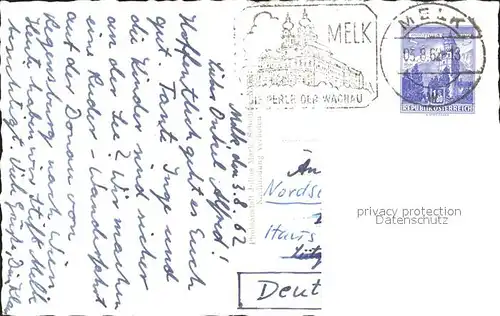 Melk den 5.8.62
Lieber Onkel Alfred!
Hoffentlich geht es Euch
gut. Tante Inge und
die Kinder sind sicher
an der See? Wir machen
eine Ruder-Wanderfahrt
auf der Donau von
Regensburg nach Wien
Heute haben wir Stift Melk
besichtigt. Viele Grüße,
MELK
PERLE DER WACHAU
MELK
05.8.62-13
REPUBLIK ÖSTERREICH
An
Nordse
Haus
Deut
privacy protection
Datenschutz